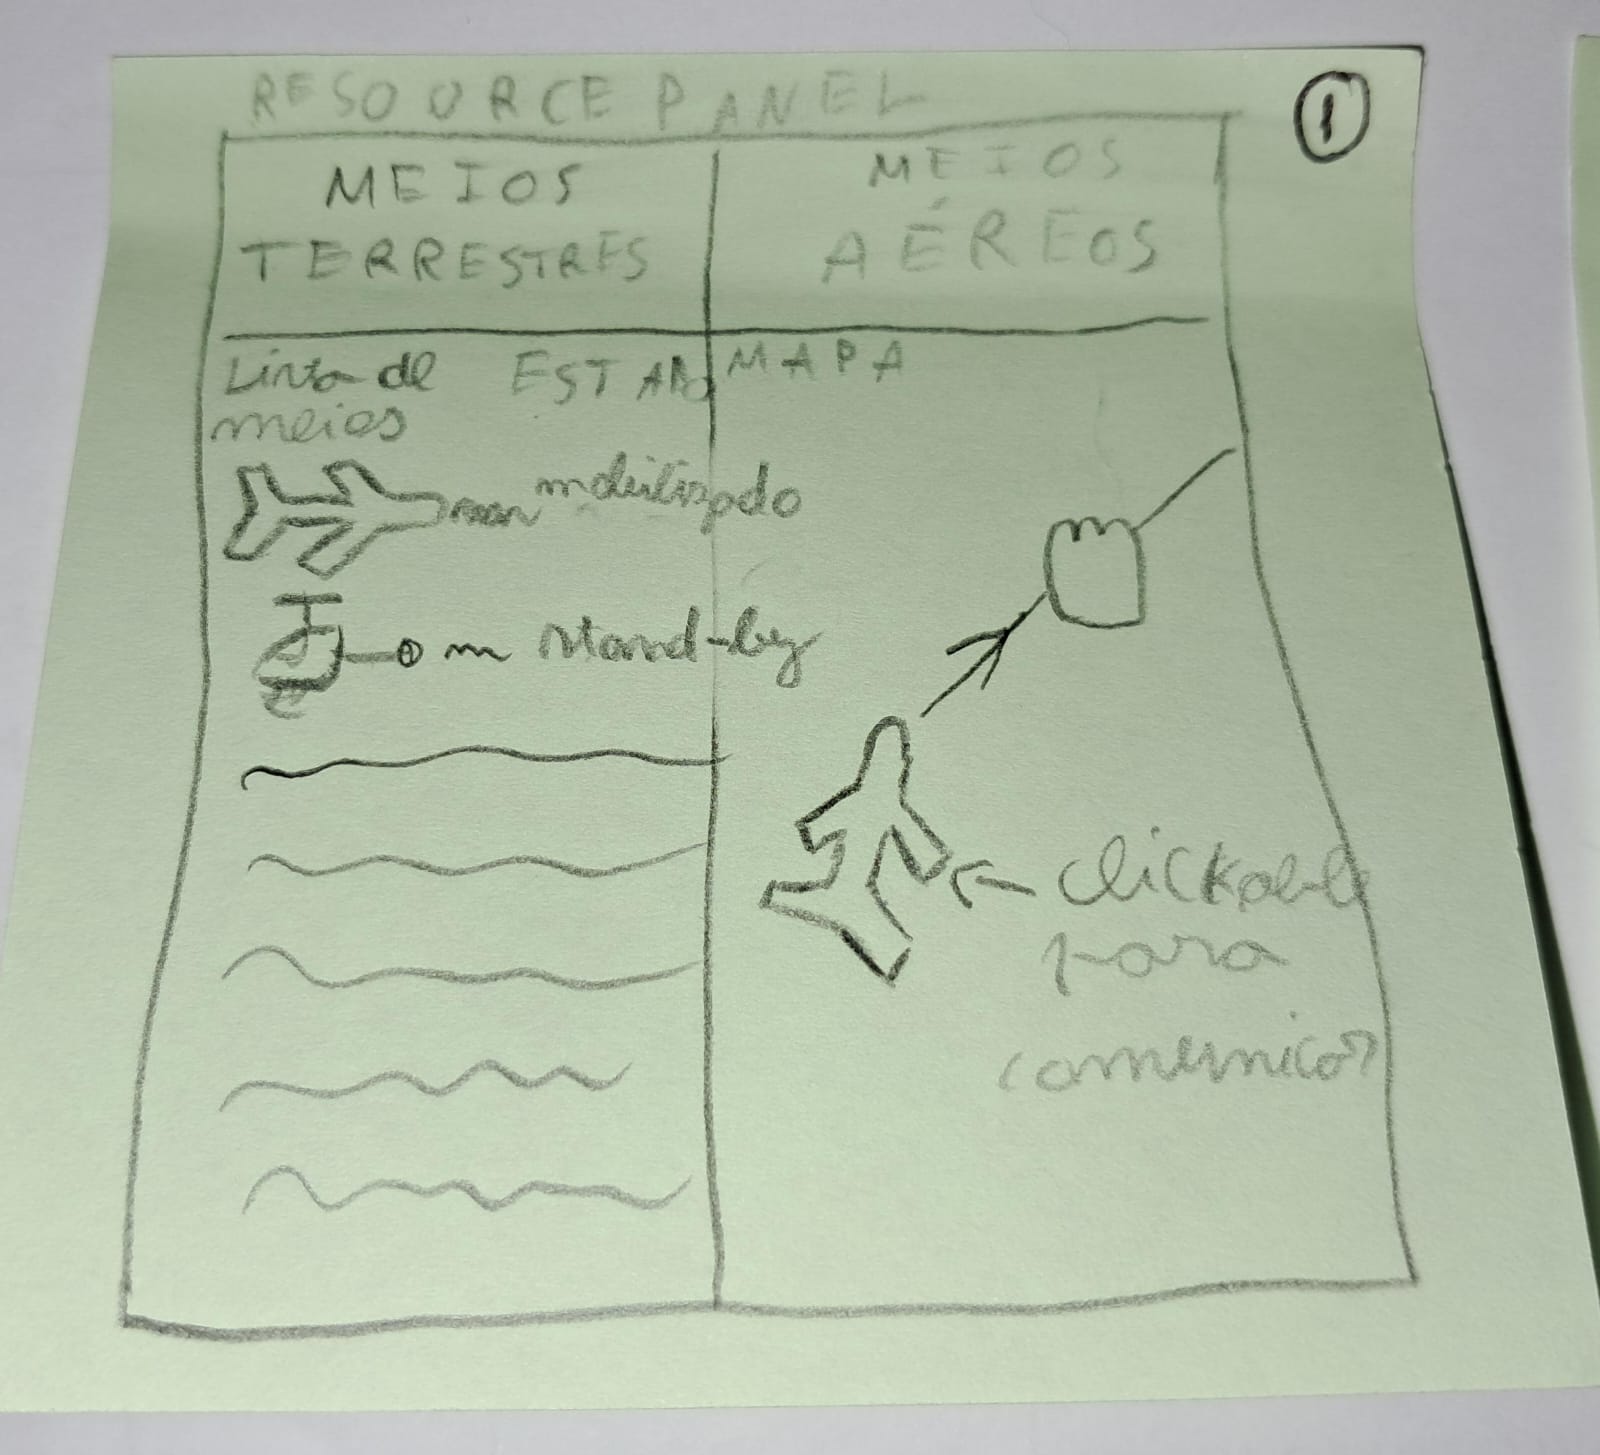 RESOURCE PANEL
1
MEIOS
TERRESTRES
MEIOS
AÉREOS
Lista de
meios
ESTADO
MAPA
mobilizado
stand-by
clickable
para
comunicar